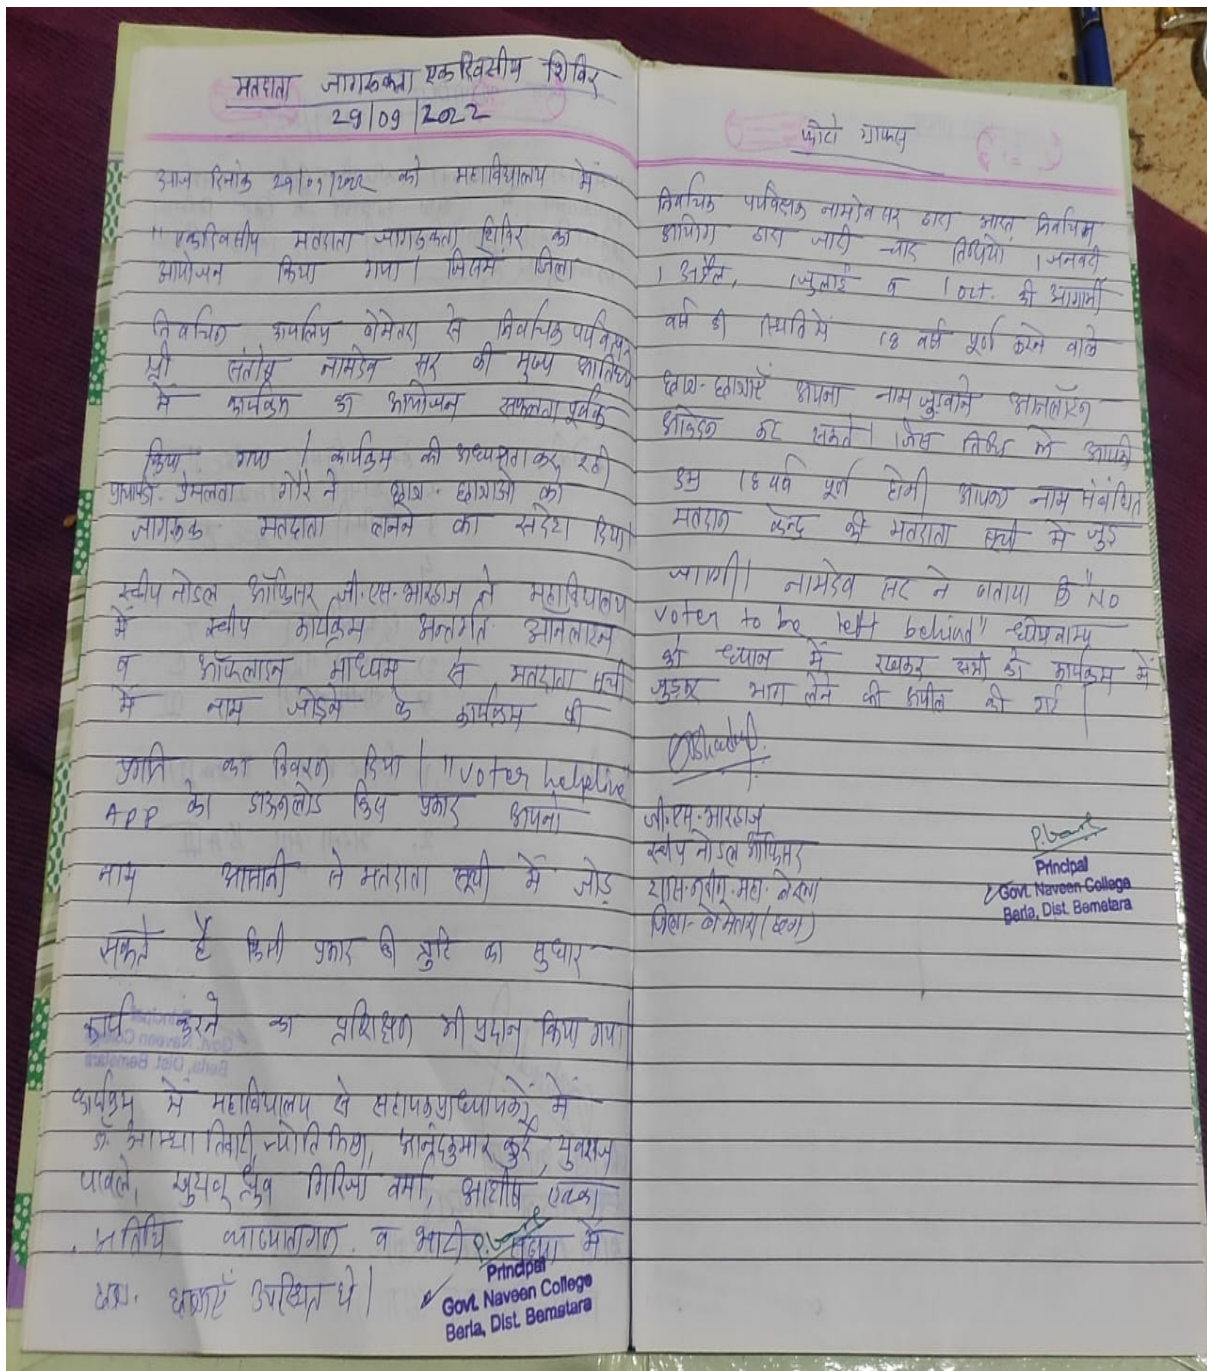 मतदाता जागरूकता एकदिवसीय शिविर
29/09/2022
आज दिनांक 29/09/2022 को महाविद्यालय में
"एकदिवसीय मतदाता जागरूकता शिविर का
आयोजन किया गया। जिसमें जिला
निर्वाचन कार्यालय बेमेतरा से निर्वाचन पर्यवेक्षक
श्री संतोष नामदेव सर की मुख्य आतिथ्य
में कार्यक्रम का आयोजन सफलता पूर्वक
किया गया। कार्यक्रम की अध्यक्षता कर रही
प्रेमलता गौरे ने छात्र-छात्राओं को
जागरूक मतदाता बनने का संदेश दिया।
स्वीप नोडल ऑफिसर जी.एस.भारद्वाज ने महाविद्यालय
में स्वीप कार्यक्रम अन्तर्गत आनलाइन
व ऑफलाइन माध्यम से मतदाता सूची
में नाम जोड़ने के कार्यक्रम की
प्रगति का विवरण दिया। "voter helpline
APP को डाऊनलोड किस प्रकार अपना
नाम आसानी से मतदाता सूची में जोड़
सकते हैं किसी प्रकार की त्रुटि का सुधार
कार्य करने का प्रशिक्षण भी प्रदान किया गया।
कार्यक्रम में महाविद्यालय से सहायक प्राध्यापकों में
डॉ. आस्था तिवारी, ज्योति मिश्रा, कुमार कुर्रे, युवराज
पावले, ध्रुव गिरिजा वर्मा, आशीष एक्का
अतिथि व्याख्यातागण व भारी संख्या में
छात्र-छात्राएँ उपस्थित थे।
P.Gaure
Principal
Govt. Naveen College
Berla, Dist. Bemetara
फोटो ग्राफ्स
निर्वाचन पर्यवेक्षक नामदेव सर द्वारा भारत निर्वाचन
आयोग द्वारा जारी चार तिथियों 1 जनवरी
1 अप्रैल, 1 जुलाई व 1 oct. की आगामी
वर्ष की स्थिति में 18 वर्ष पूर्ण करने वाले
छात्र-छात्राएँ अपना नाम जुड़वाने आनलाईन
आवेदन कर सकते। जिस तिथि में आपकी
उम्र 18 वर्ष पूर्ण होगी आपका नाम संबंधित
मतदान केन्द्र की मतदाता सूची में जुड़
जाएगी। नामदेव सर ने बताया कि "NO
voter to be left behind" ध्येयवाक्य
को ध्यान में रखकर सभी को कार्यक्रम में
जुड़कर भाग लेने की अपील की गई।
जी.एस.भारद्वाज
स्वीप नोडल ऑफिसर
शास.नवीन.महा.बेरला
जिला-बेमेतरा (छ.ग)
P.Gaure
Principal
Govt. Naveen College
Berla, Dist. Bemetara